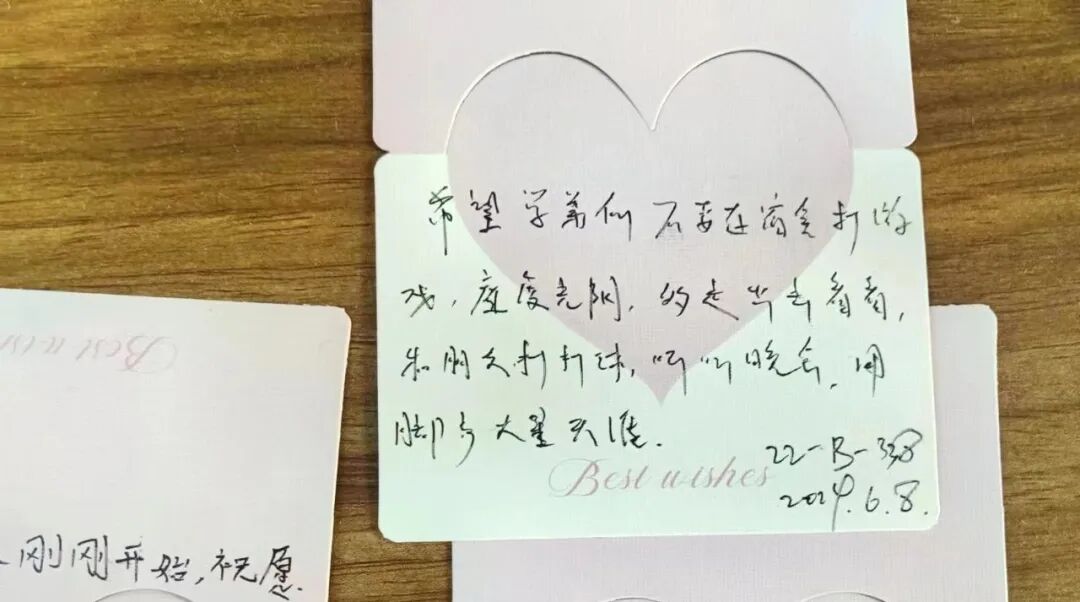 希望学弟们不要在宿舍打游
戏，虚度光阴，多走出去看看，
和朋友打打球，听听晚会，用
脚步丈量天涯.
22-B-338
Best wishes
2024.6.8.
Best wis
刚刚开始，祝愿